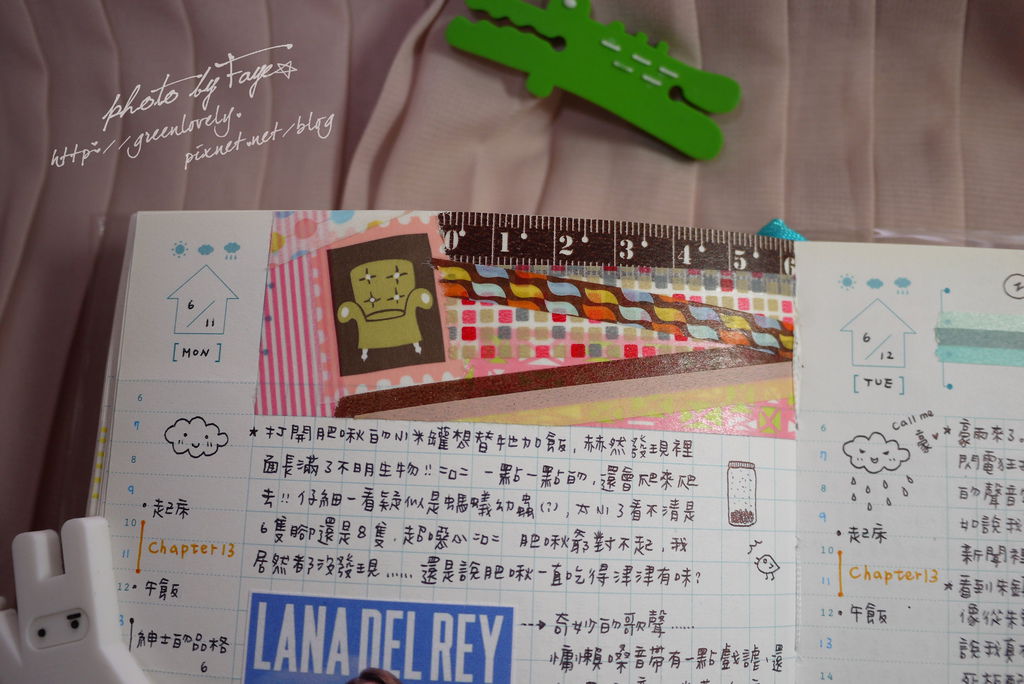 photo by Faye
http://greenlovely.
pixnet.net/blog
0 1 2 3 4 5 6
6/11
[MON]
6
7
8
9
10
11
12
3
•起床
Chapter13
•午飯
紳士的品格
6
★打開肥啾的小米罐想替牠加飯,赫然發現裡
面長滿了不明生物!!=口= 一點一點的,還會爬來爬
去!!仔細一看疑似是螞蟻幼蟲(?),太小了看不清是
6隻腳還是8隻,超噁心=口= 肥啾爺對不起,我
居然都沒發現......還是說肥啾一直吃得津津有味?
LANA DEL REY
奇妙的歌聲......
慵懶嗓音帶有一點戲謔,還
6/12
[TUE]
6
7
8
9
10
11
12
13
14
Call me
•起床
Chapter13
•午飯
★豪雨來了
閃電
的聲音
如說我
新聞裡
★看到朱
像從朱
說我真